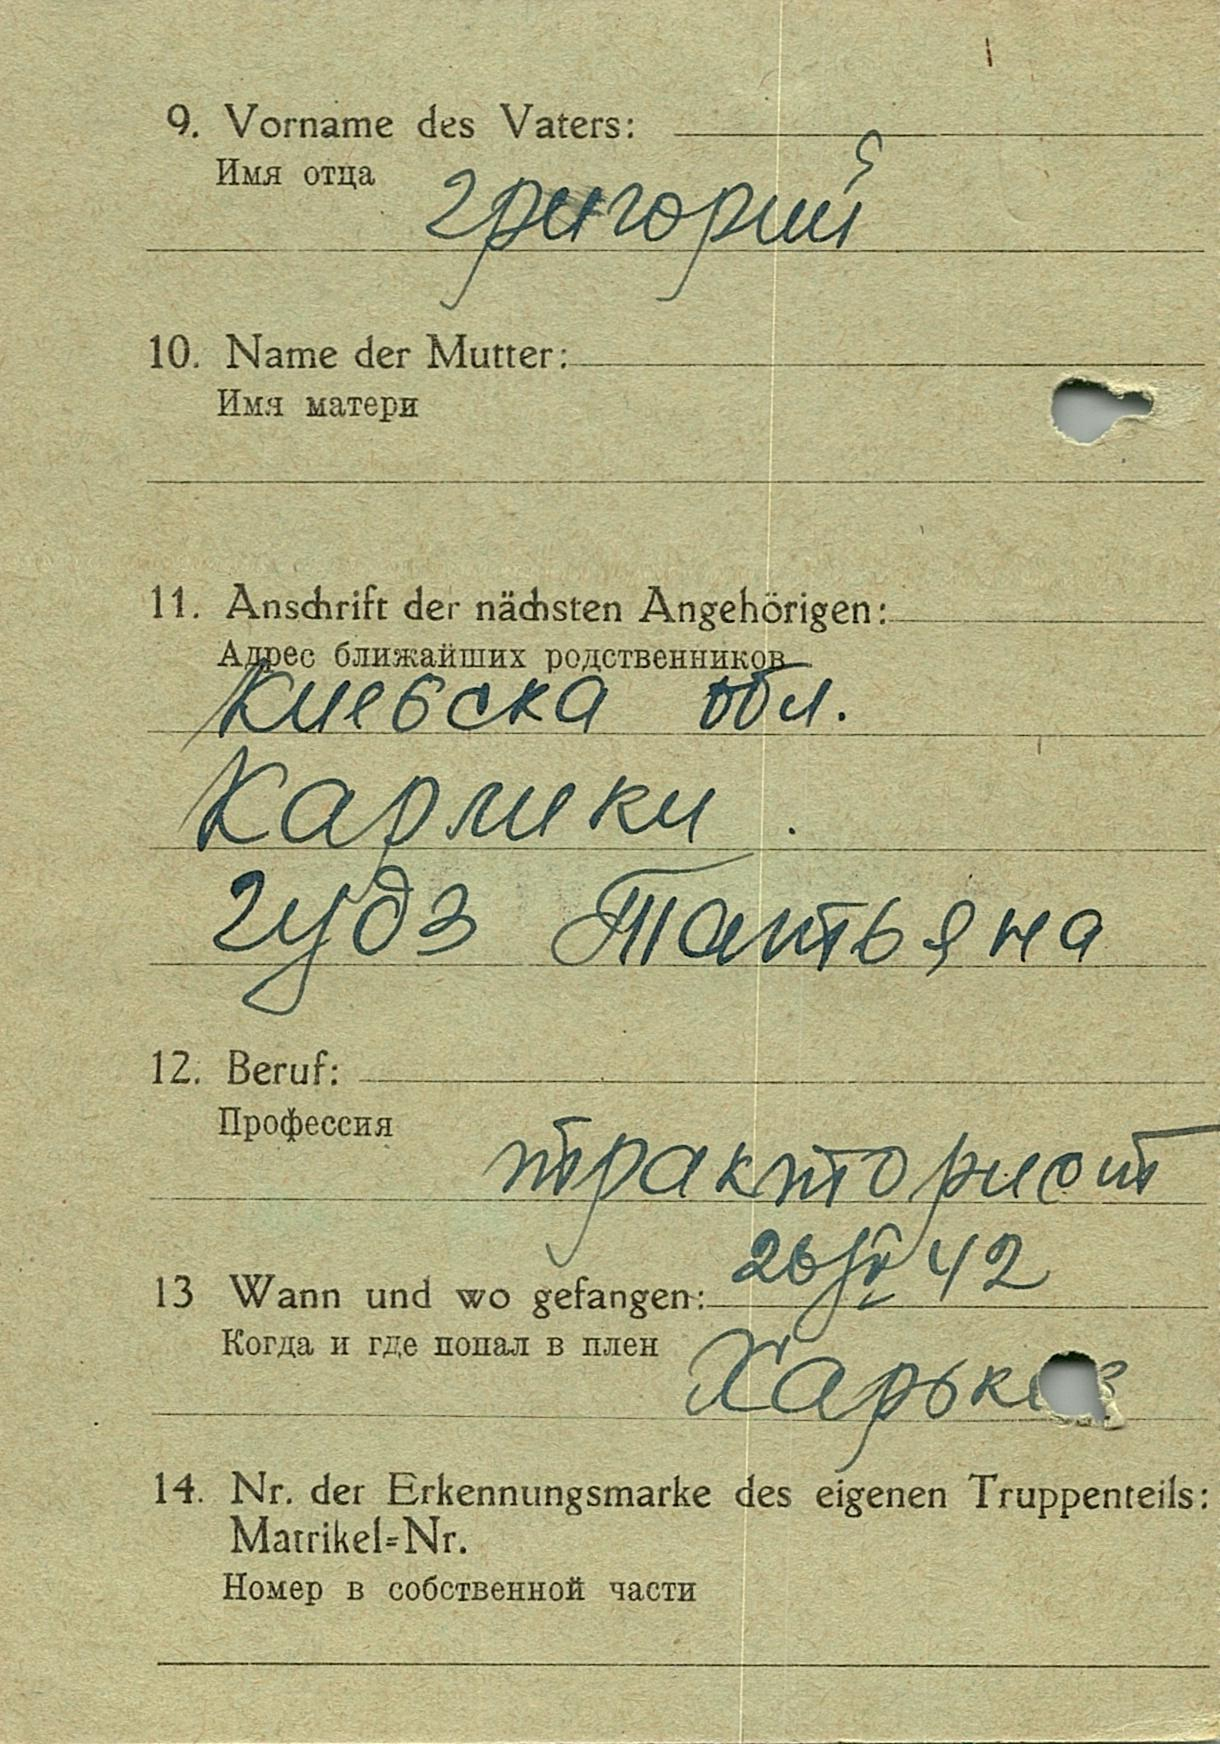 9. Vorname des Vaters:
Имя отца
григорий
10. Name der Mutter:
Имя матери
11. Anschrift der nächsten Angehörigen:
Адрес ближайших родственников
Киевска обл.
Карлики.
гудз Татьяна
12. Beruf:
Профессия
тракторист
26 IV 42
13 Wann und wo gefangen:
Когда и где попал в плен
Харьков
14. Nr. der Erkennungsmarke des eigenen Truppenteils:
Matrikel=Nr.
Номер в собственной части